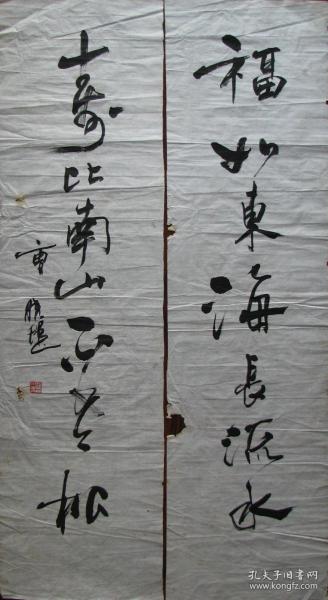 福如東海長流水
壽比南山不老松
孔夫子旧书网
www.kongfz.com